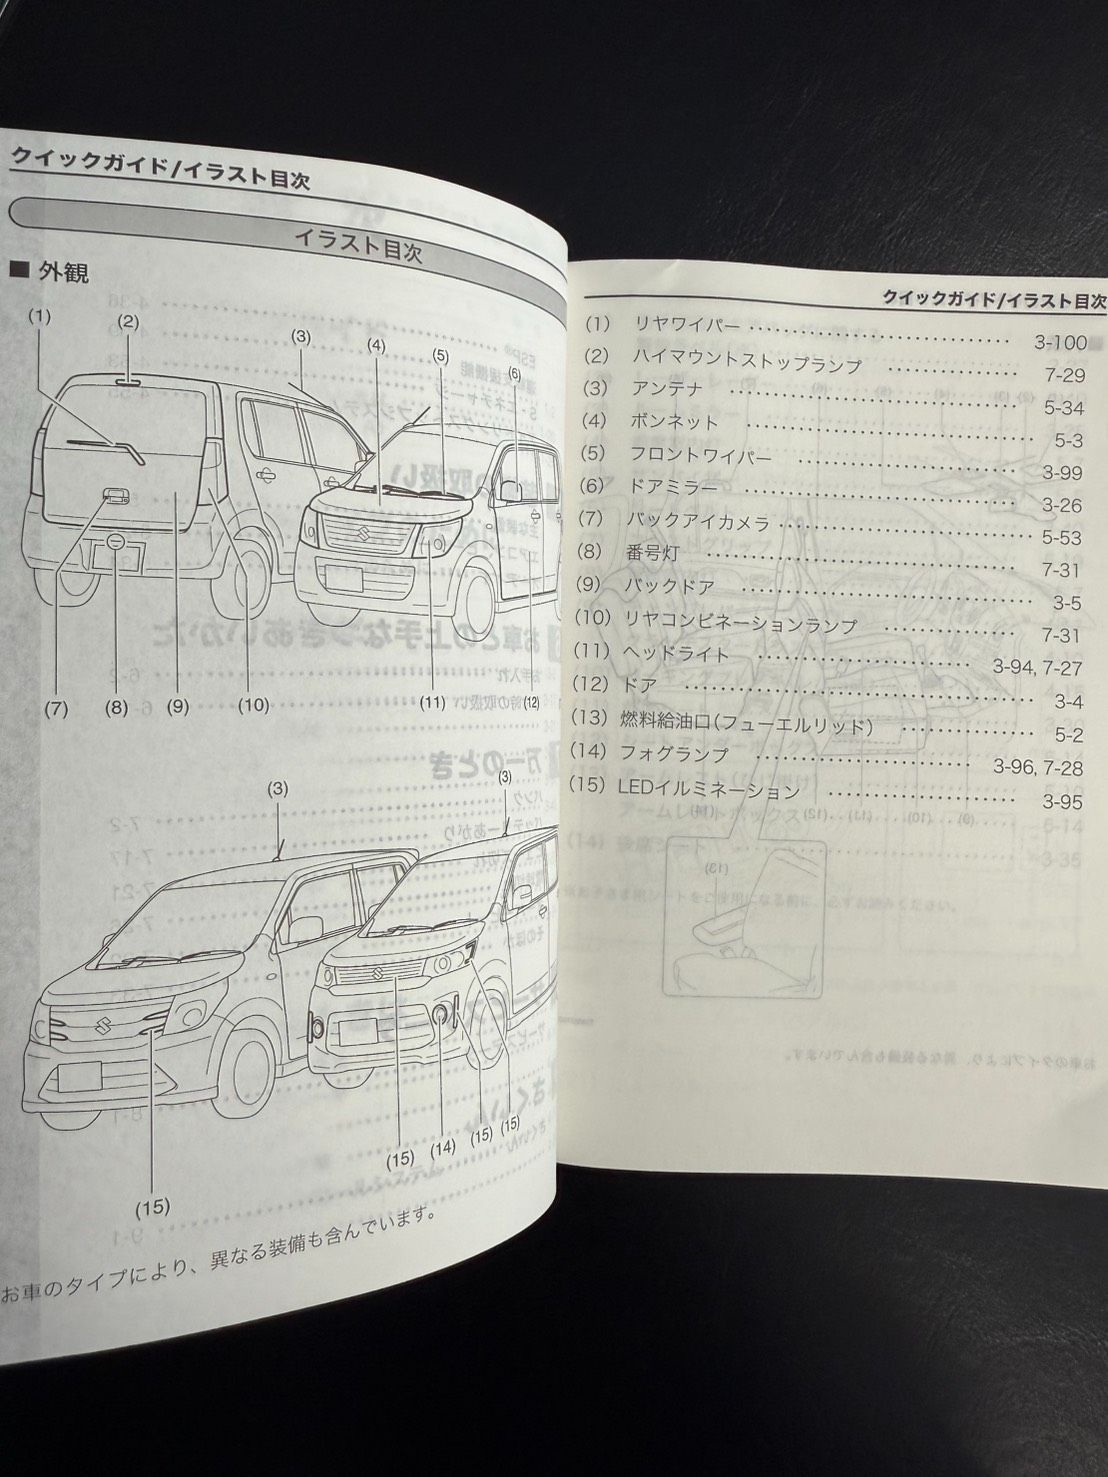 クイックガイド/イラスト目次
イラスト目次
■ 外観
(1)
(2)
(3)
(4)
(5)
(6)
(7)
(8)
(9)
(10)
(11)
(12)
(3)
(3)
(15)
(15)
(14)
(15)
(15)
お車のタイプにより、異なる装備も含んでいます。
クイックガイド/イラスト目次
(1) リヤワイパー 3-100
(2) ハイマウントストップランプ 7-29
(3) アンテナ 5-34
(4) ボンネット 5-3
(5) フロントワイパー 3-99
(6) ドアミラー 3-26
(7) バックアイカメラ 5-53
(8) 番号灯 7-31
(9) バックドア 3-5
(10) リヤコンビネーションランプ 7-31
(11) ヘッドライト 3-94, 7-27
(12) ドア 3-4
(13) 燃料給油口(フューエルリッド) 5-2
(14) フォグランプ 3-96, 7-28
(15) LEDイルミネーション 3-95